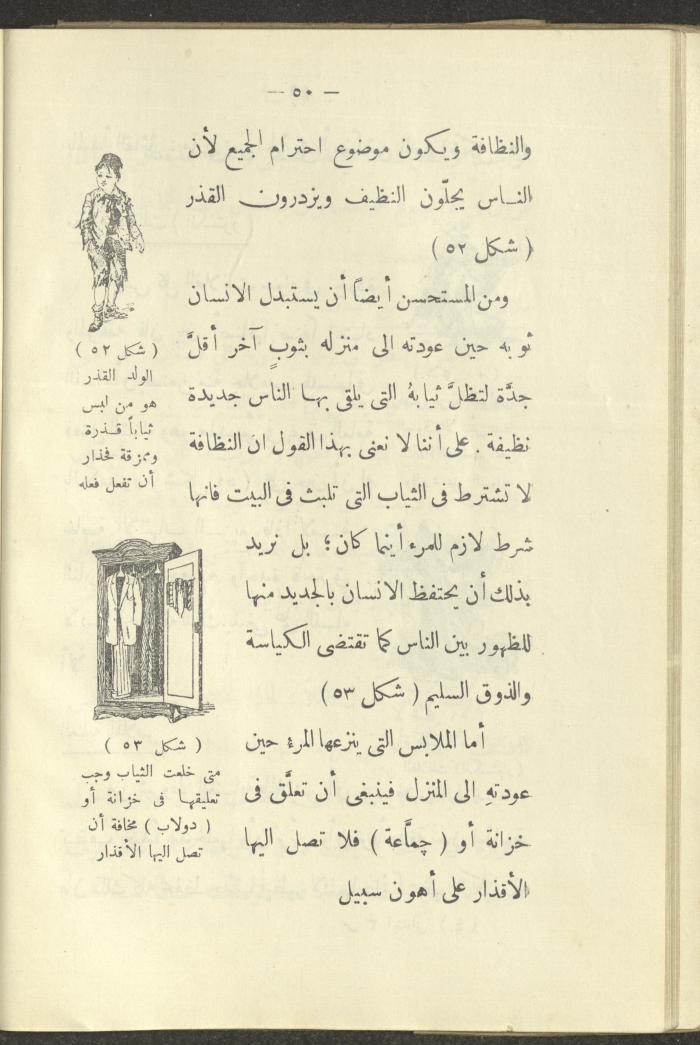 — ٥٠ —
والنظافة ويكون موضوع احترام الجميع لأن
الناس يجلّون النظيف ويزدرون القذر
( شكل ٥٢ )
ومن المستحسن أيضاً أن يستبدل الانسان
ثوبه حين عودته الى منزله بثوبٍ آخر أقلَّ
جدَّة لتظلَّ ثيابهُ التى يلقى بها الناس جديدة
نظيفة . على أننا لا نعنى بهذا القول ان النظافة
لا تشترط فى الثياب التى تلبث فى البيت فانها
شرط لازم للمرء أينما كان ؛ بل نريد
بذلك أن يحتفظ الانسان بالجديد منها
للظهور بين الناس كما تقتضى الكياسة
والذوق السليم ( شكل ٥٣ )
أما الملابس التى ينزعها المرء حين
عودتهِ الى المنزل فينبغى أن تعلَّق فى
خزانة أو ( جمَّاعة ) فلا تصل اليها
الأقذار على أهون سبيل
( شكل ٥٢ )
الولد القذر
هو من لبس
ثياباً قذرة
وممزقة فحذار
أن تفعل فعله
( شكل ٥٣ )
متى خلعت الثياب وجب
تعليقها فى خزانة أو
( دولاب ) مخافة أن
تصل اليها الأقذار